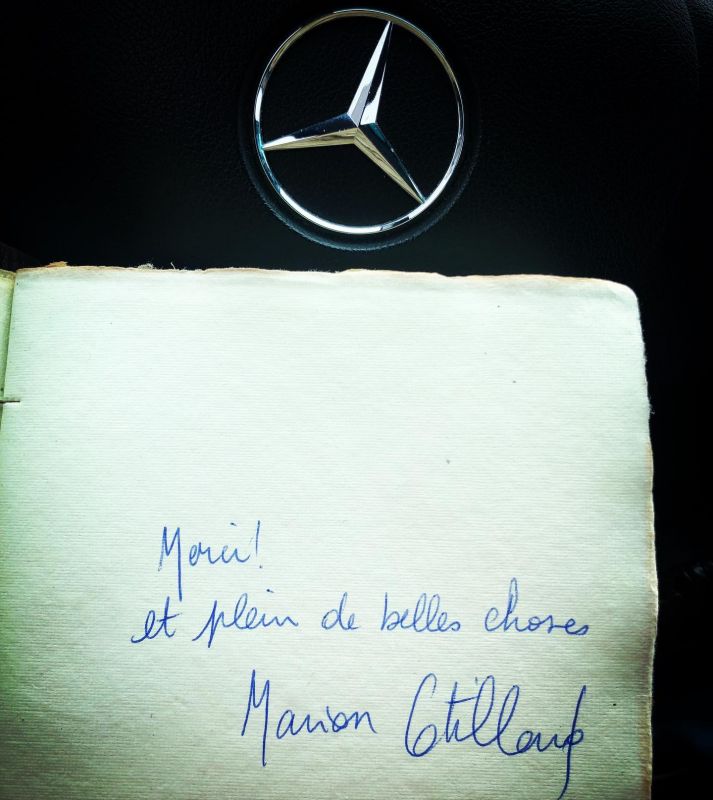 Merci!
et plein de belles choses
Marion Cotillard